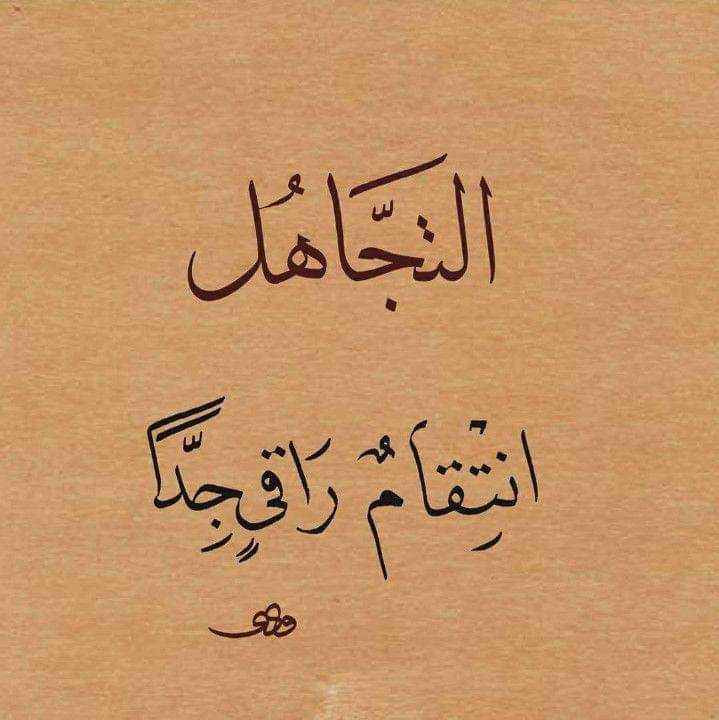 التجَّاهُل
انْتِقامٌ رَاقيٍ جِدَّاً